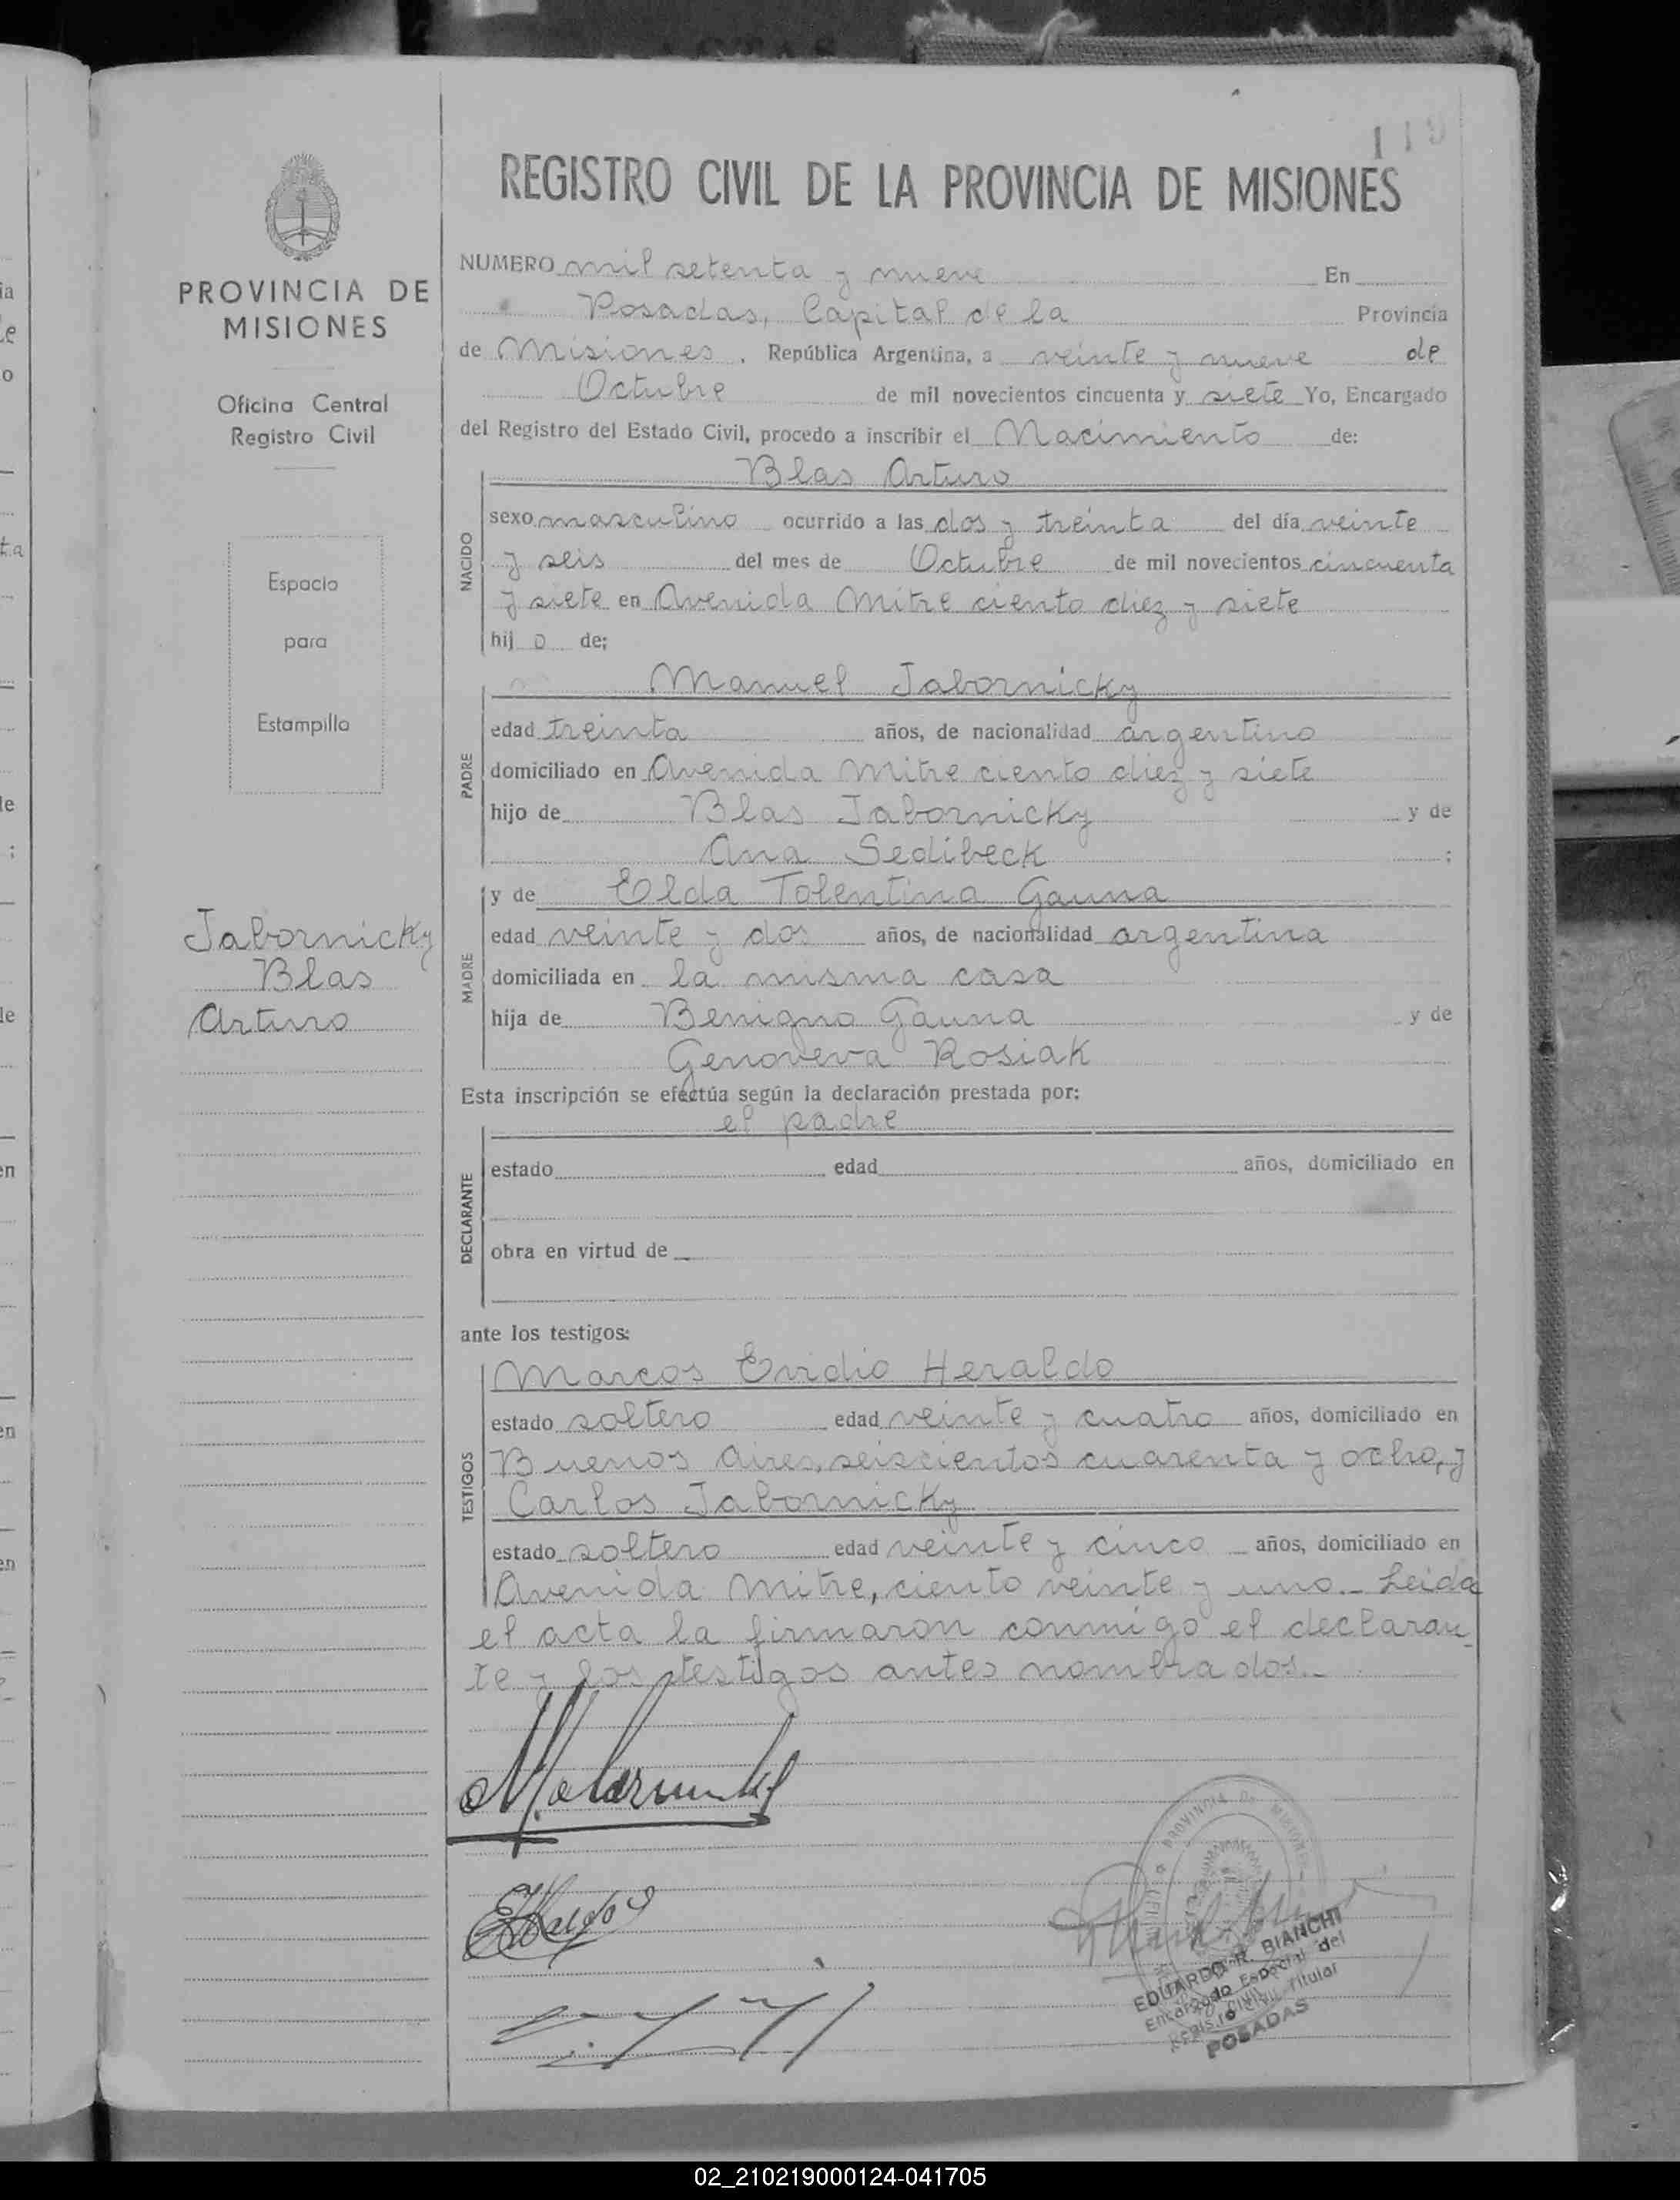 119
REGISTRO CIVIL DE LA PROVINCIA DE MISIONES
PROVINCIA DE
MISIONES
Oficina Central
Registro Civil
Espacio
para
Estampilla
Jabornicky
Blas
Arturo
NUMERO mil setenta y nueve En
Posadas, Capital de la Provincia
de Misiones. República Argentina, a veinte y nueve de
Octubre de mil novecientos cincuenta y siete Yo, Encargado
del Registro del Estado Civil, procedo a inscribir el Nacimiento de:
Blas Arturo
NACIDO
sexo masculino ocurrido a las dos y treinta del día veinte
y seis del mes de Octubre de mil novecientos cincuenta
y siete en Avenida Mitre ciento diez y siete
hij o de;
Manuel Jabornicky
PADRE
edad treinta años, de nacionalidad argentino
domiciliado en Avenida Mitre ciento diez y siete
hijo de Blas Jabornicky y de
Ana Sedibeck ;
y de Elda Tolentina Gauna
MADRE
edad veinte y dos años, de nacionalidad argentina
domiciliada en la misma casa
hija de Benigno Gauna y de
Genoveva Rosiak
Esta inscripción se efectúa según la declaración prestada por:
el padre
DECLARANTE
estado edad años, domiciliado en
obra en virtud de
ante los testigos:
Marcos Evidio Heraldo
TESTIGOS
estado soltero edad veinte y cuatro años, domiciliado en
Buenos Aires, seiscientos cuarenta y ocho, y
Carlos Jabornicky
estado soltero edad veinte y cinco años, domiciliado en
Avenida Mitre, ciento veinte y uno.- Leida
el acta la firmaron conmigo el declaran-
te y los testigos antes nombrados.-
PROVINCIA DE MISIONES
EDUARDO R. BIANCHI
Encargado Especial del
Registro Civil Titular
POSADAS
02_210219000124-041705